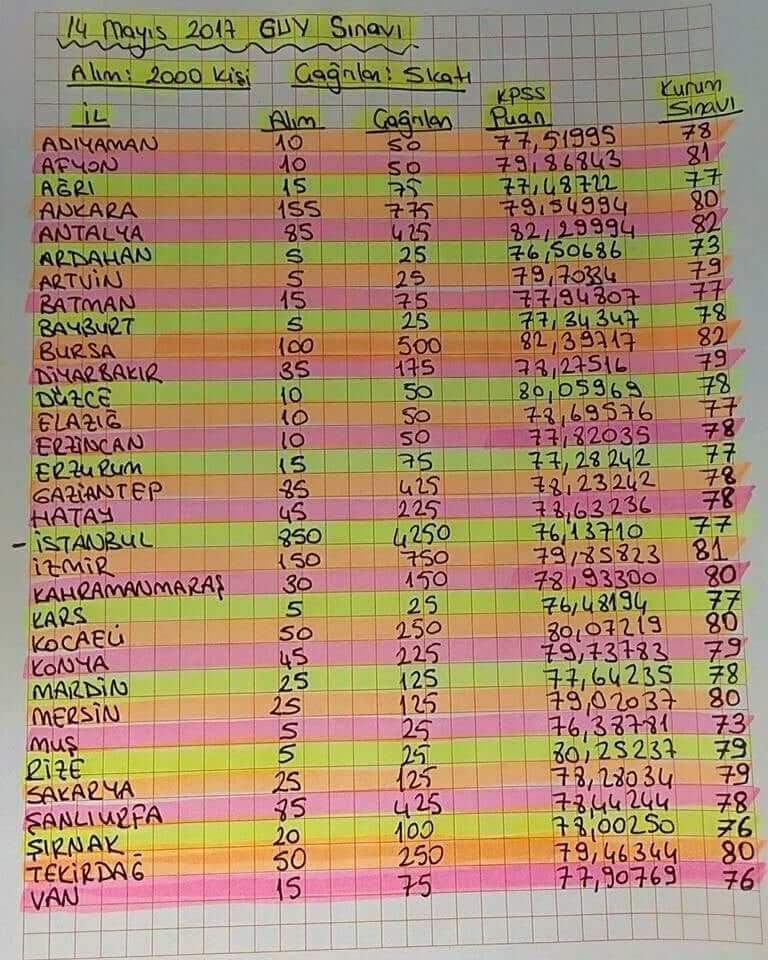 14 Mayıs 2017 GUY Sınavı
Alım: 2000 kişi Çağrılan: 5 katı
İL Alım Çağrılan KPSS Puan Kurum Sınavı
ADIYAMAN 10 50 77,51995 78
AFYON 10 50 79,86843 81
AĞRI 15 75 77,48722 77
ANKARA 155 775 79,54994 80
ANTALYA 85 425 82,29994 82
ARDAHAN 5 25 76,50686 73
ARTVİN 5 25 79,70334 79
BATMAN 15 75 77,94807 77
BAYBURT 5 25 77,34347 78
BURSA 100 500 82,39717 82
DİYARBAKIR 35 175 78,27516 79
DÜZCE 10 50 80,05969 78
ELAZIĞ 10 50 78,69576 77
ERZİNCAN 10 50 77,82035 78
ERZURUM 15 75 77,28242 77
GAZİANTEP 85 425 78,23242 78
HATAY 45 225 78,63236 78
- İSTANBUL 850 4250 76,13710 77
İZMİR 150 750 79,85823 81
KAHRAMANMARAŞ 30 150 78,93300 80
KARS 5 25 76,48194 77
KOCAELİ 50 250 80,07219 80
KONYA 45 225 79,73783 79
MARDİN 25 125 77,64235 78
MERSİN 25 125 79,02037 80
MUŞ 5 25 76,38781 73
RİZE 5 25 80,25237 79
SAKARYA 25 125 78,28034 79
ŞANLIURFA 85 425 78,44244 78
ŞIRNAK 20 100 78,00250 76
TEKİRDAĞ 50 250 79,46344 80
VAN 15 75 77,90769 76